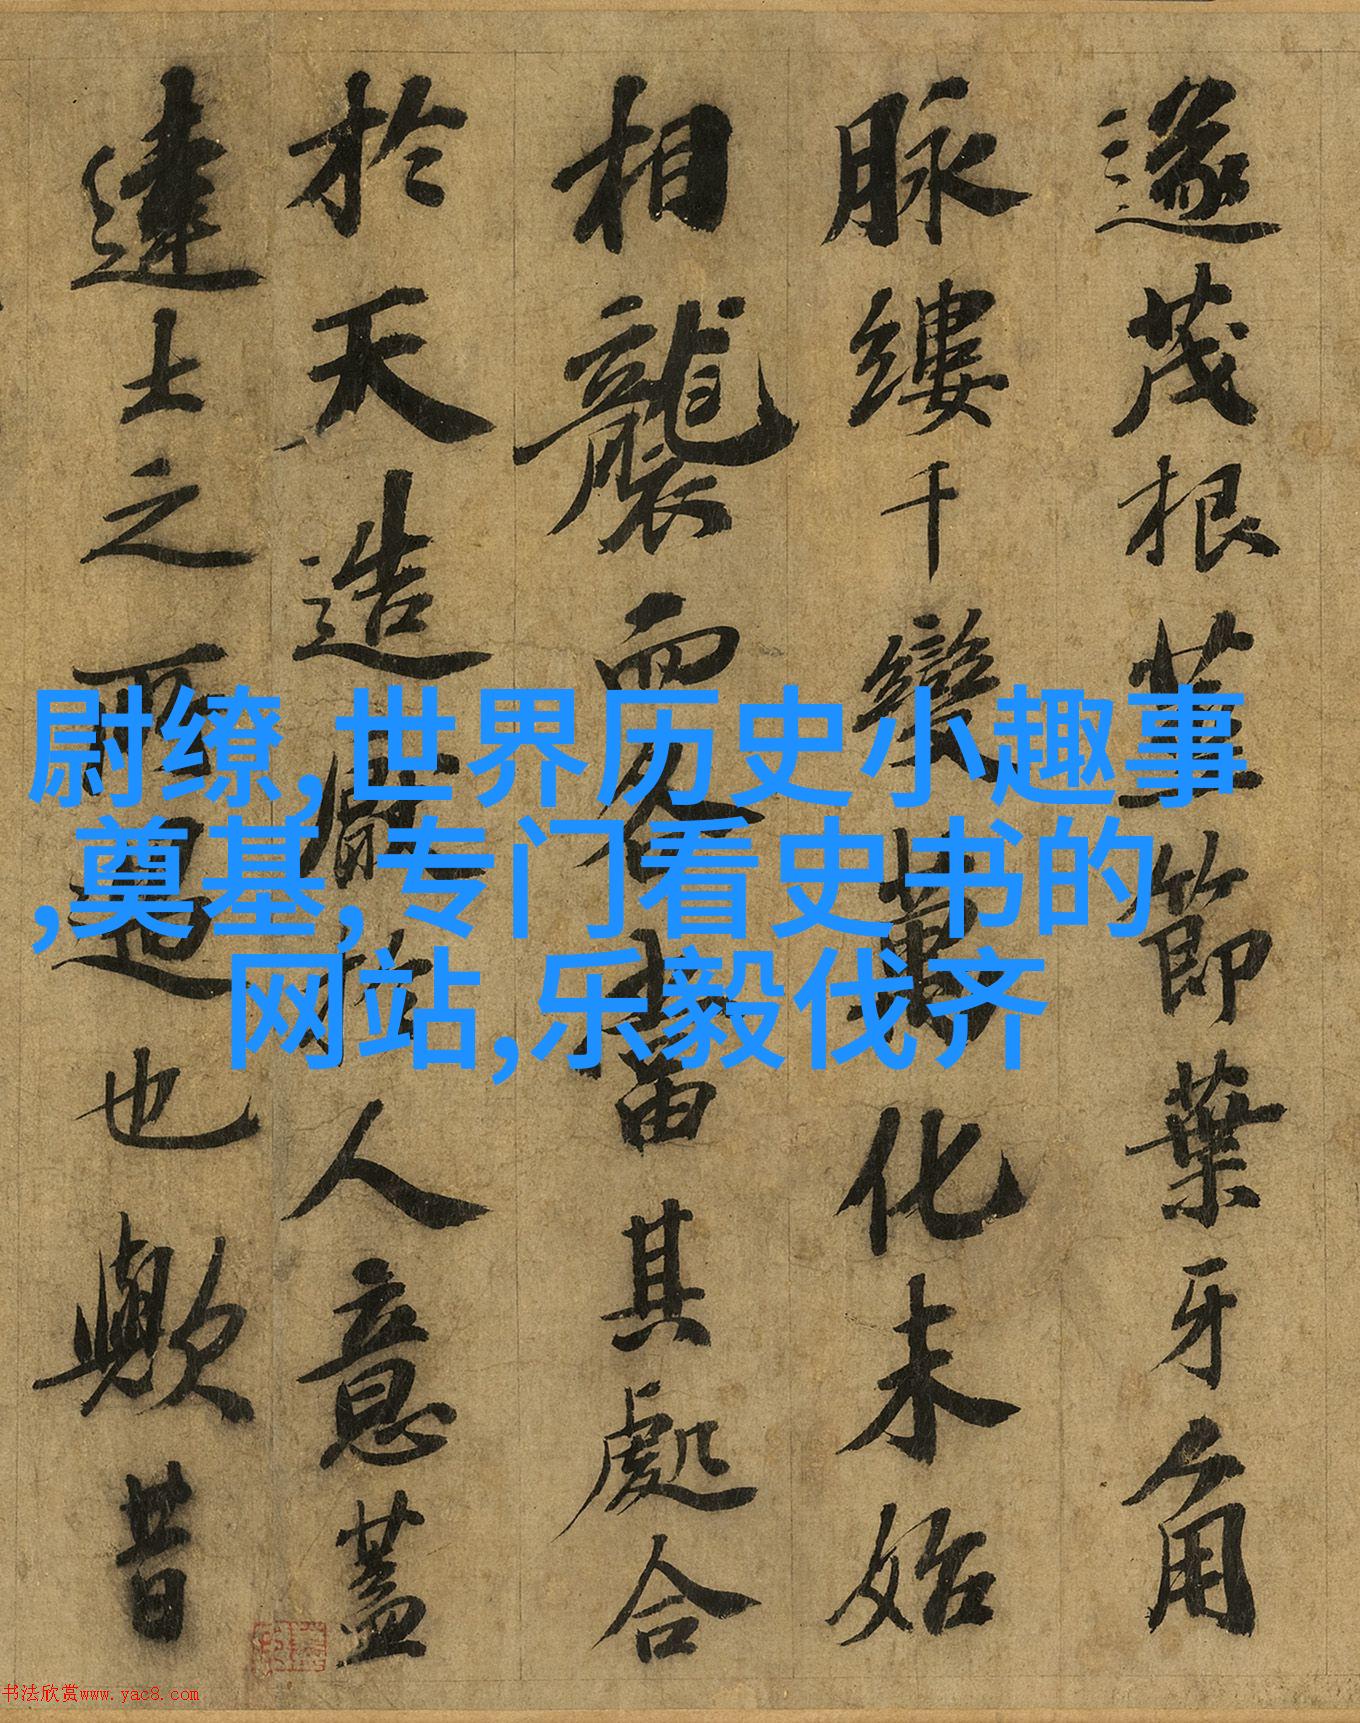 遂茂根莖節葉牙角
脉縷千變萬化未始
相襲而各當其處合
於天造猒於人意蓋
達士之所遇也歟昔
尉缭,世界历史小趣事
,奠基,专门看史书的
网站,乐毅伐齐
书法欣赏www.yac8.com